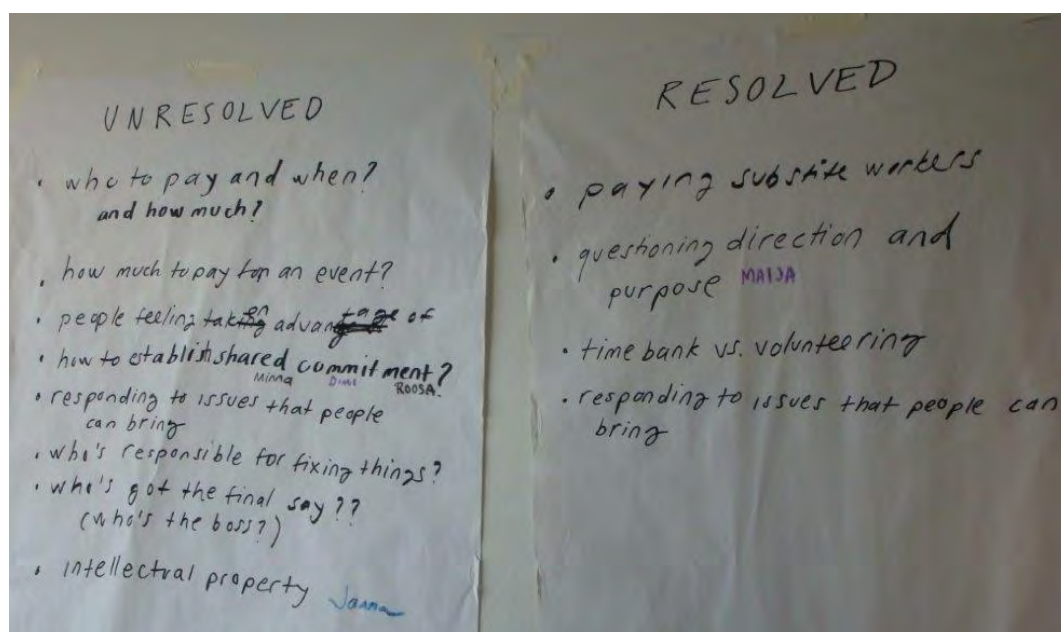 UNRESOLVED
• who to pay and when?
and how much?
• how much to pay for an event?
• people feeling taken advantage of
• how to establish shared commitment?
Minna ROOSA
• responding to issues that people
can bring
• who's responsible for fixing things?
• who's got the final say??
(who's the boss?)
• intellectual property Janna
RESOLVED
• paying substite workers
• questioning direction and
purpose MAIJA
• time bank vs. volunteering
• responding to issues that people can
bring